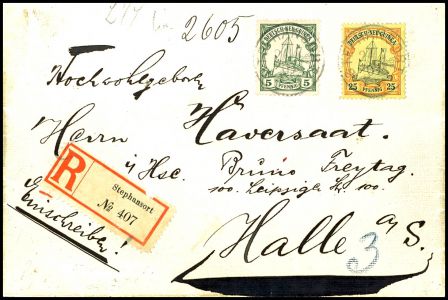 2605
DEUTSCH-NEU-GUINEA
5 PFENNIG 5
DEUTSCH-NEU-GUINEA
25 PFENNIG 25
Hochwohlgeboren
Herrn Haversaat.
Bruno Freytag.
100. Leipzigstr. 100.
R
Stephansort
№ 407
Einschreiben!
Halle a/S.
3